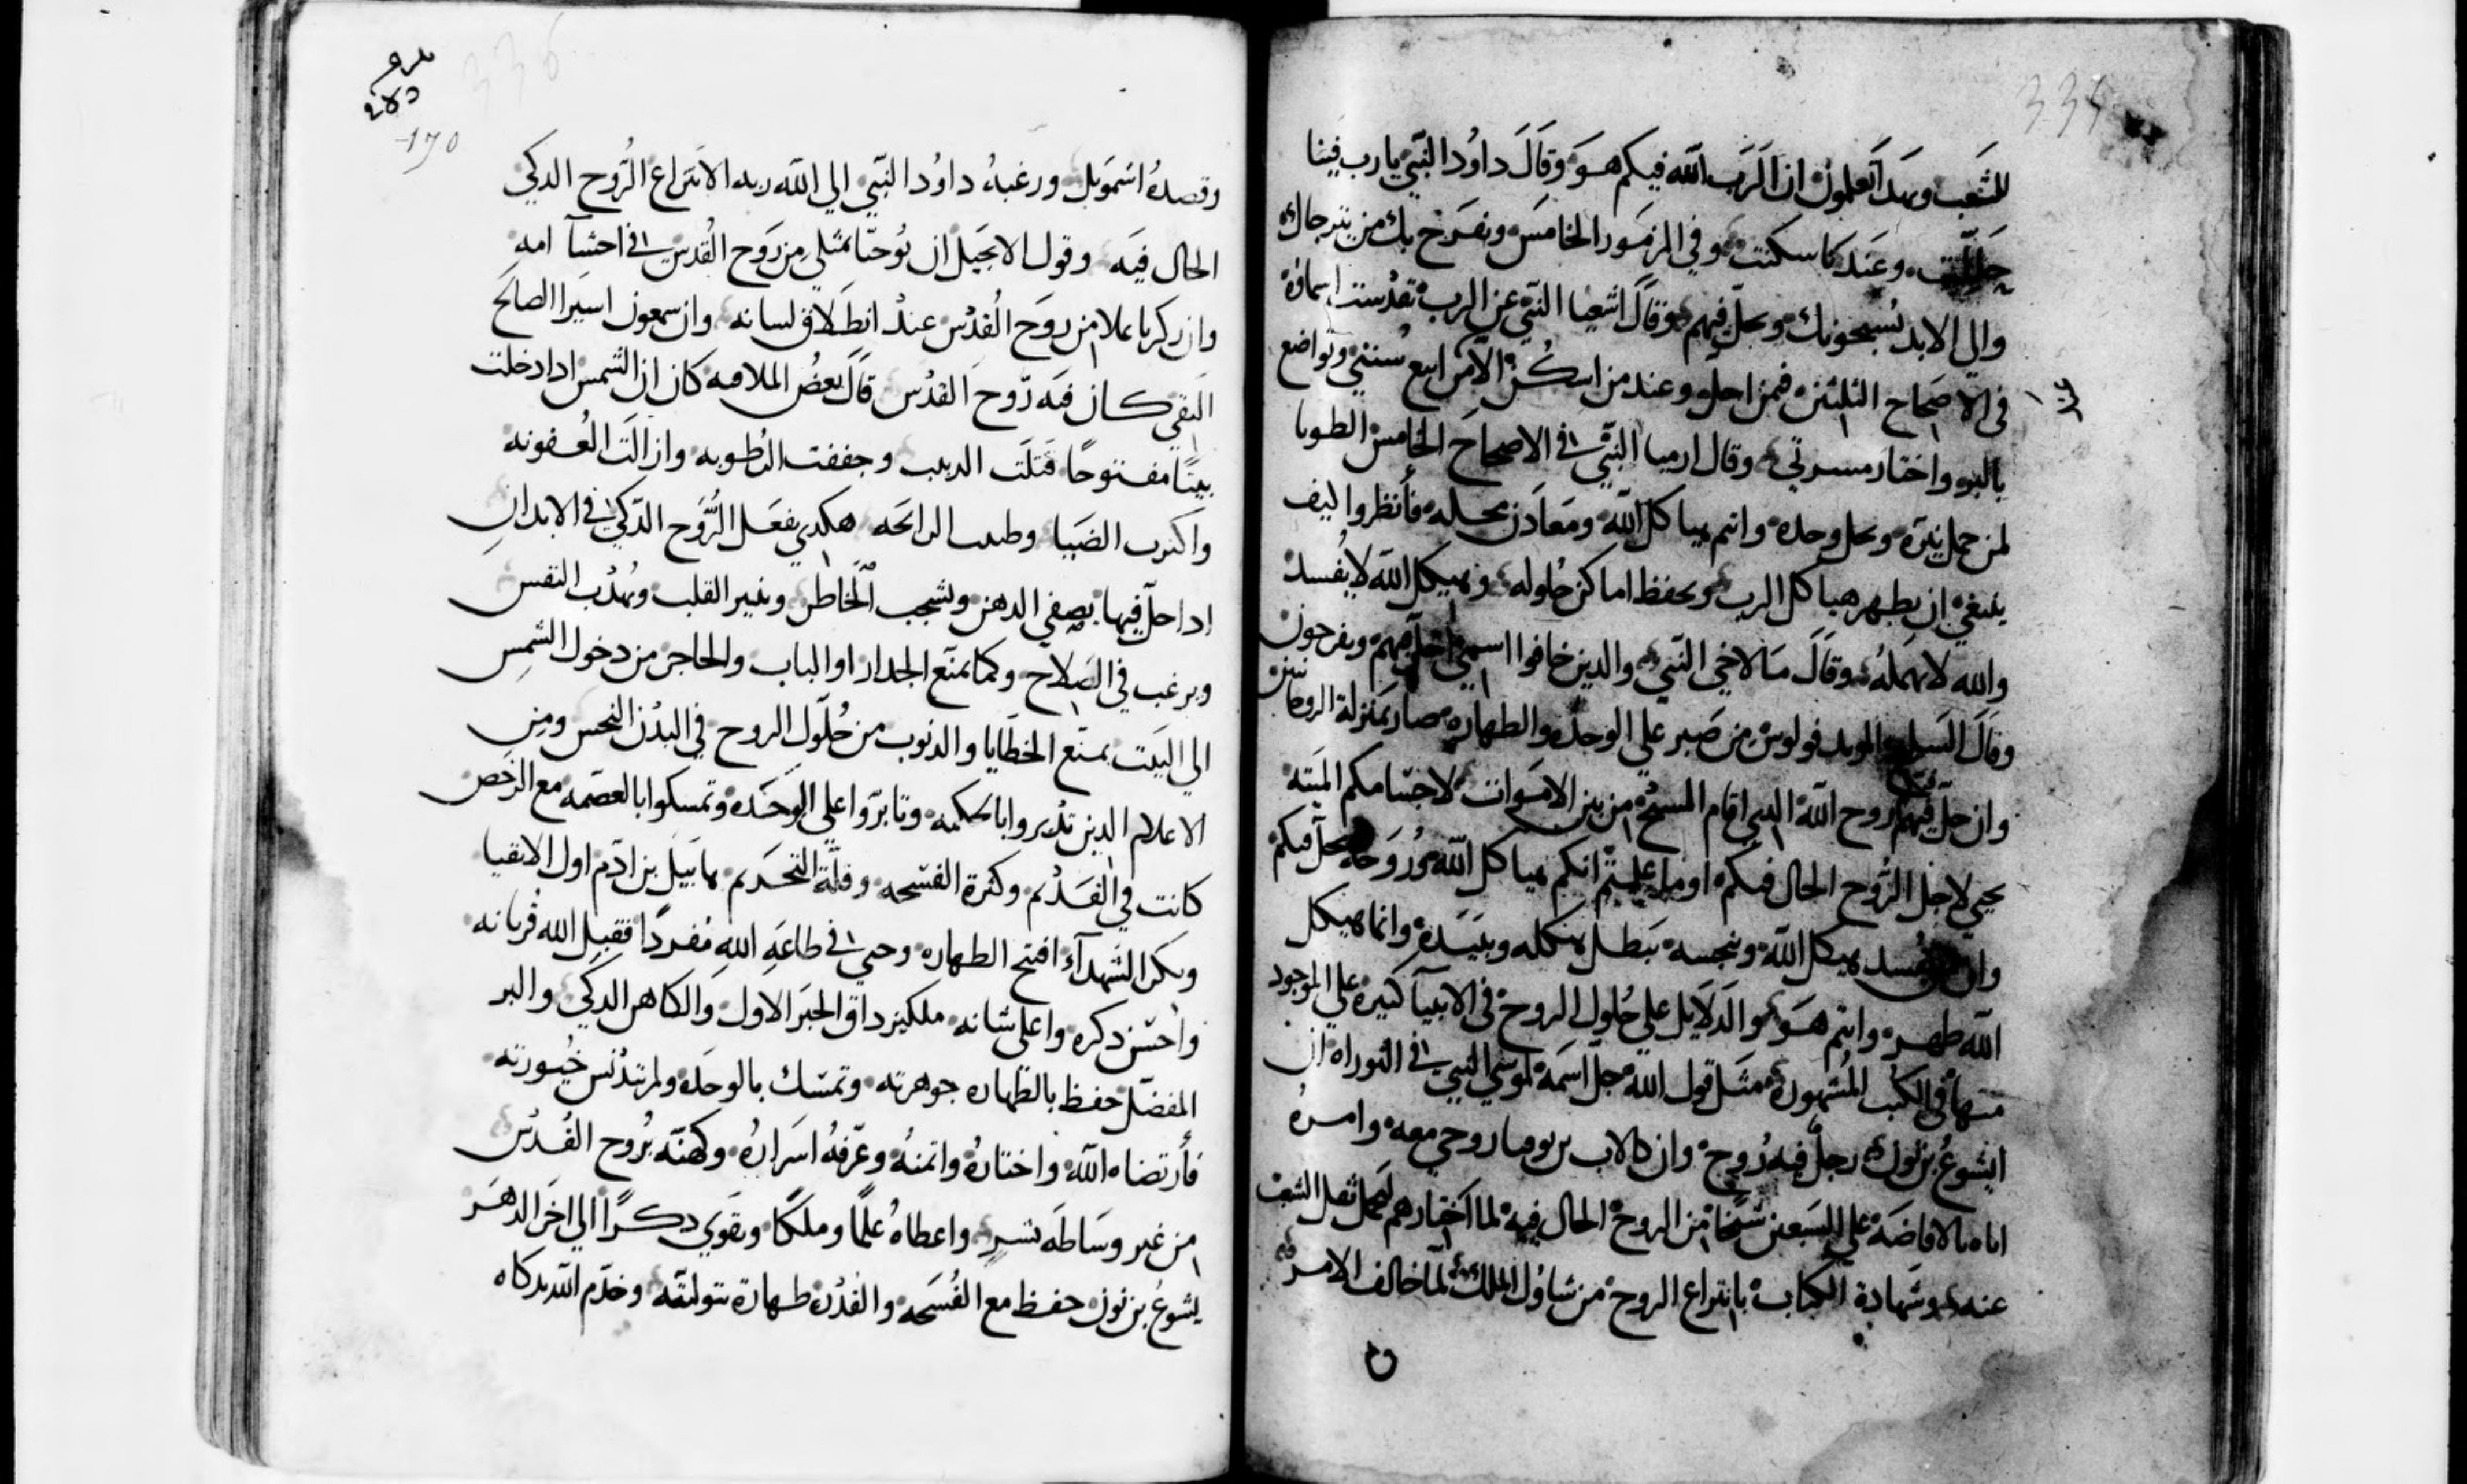 334
للشعب وبهدا تعلمون ان الرب الله فيكم هو وقال داوُد النبي يارب فينا
حللت وعندنا سكنت وفي المزمور الخامس ونفرح بك من يترجاك
والي الابد يُسبحونك وتحل فيهم وقال اشعيا النبي عن الرب تقدست اسماؤه
في الاصحاح الثلثين فمن احل وعند من اسكُن الا من اتبع سُنتي وتواضع
بالبر واختار مسرتي وقال ارميا النبي في الاصحاح الخامس الطوبا
لمن حمل نيره وحل وحده وانتم هياكل الله ومعادن محله فأنظروا كيف
ينبغي ان يطهر هياكل الرب ويحفظ اماكن حُلوله وهيكل الله لا يُفسد
والله لا يهمله وقال ملاخي النبي والدين خافوا اسمي احل فيهم ويفرحون
وقال السليح المويد فولوس من صبر علي الوحده والطهاره صار بمنزلة الروحانيين
وان حل فيكم روح الله الدي اقام المسيح من بين الاموات لاجسامكم الميته
يحيي لاجل الرُوح الحال فيكم اوما علمتم انكم هياكل الله ورُوحه يحل فيكم
وان يفسد هيكل الله وينجسه يبطل هيكله ويبيده وانما هيكل
الله طهر وانتم هو والدلايل علي حُلول الروح في الانبيآ كثيره علي الموجود
منها في الكتب المشهوره مثل قول الله جل اسمه لموسي النبي في التوراه ان
ايشوعُ بن نون رجلٌ فيه رُوح وان كالاب بن يوفنا روحي معه وامرهُ
اياه بالافاضه علي السبعين شيخا من الروح الحال فيه لما اختارهم لحمل ثقل الشعب
عنه وشهادة الكتاب بانتزاع الروح من شاوُل الملك لما خالف الامر
336
170
وقصدهُ اسموَيل ورغبهُ داوُد النبي الي الله ربه الا نتزاع الرُوح الدكي
الحال فيه وقول الانجيل ان يُوحنا يمتلي من روح القُدس في احشآ امه
وان زكريا امتلا من روح القُدس عند انطلاق لسانه وان سمعون اسيرا الصالح
التقي كان فيه رُوح القدس قال بعضُ الملافنه كان ان الشمس ادا دخلت
بيتًا مفتوحًا قتلت الدبيب وجففت الرُطوبه وازالت العُفونه
واكثرت الضيا وطيبت الرايحه هكدي يفعل الرُّوح الدكي في الابدان
ادا حل فيها يصفي الدهن الخاطر وينير القلب ويُهدب النفس
ويرغب في الصلاح وكما يمنع الجدار او الباب والحاجز من دخول الشمس
الي البيت يمنع الخطايا والدنوب من حُلول الروح في البدن النجس ومن
الاعلام الدين تدبروا بالحكمه وتابروا علي الوحده وتمسكوا بالعصمه مع الرُخص
كانت في القدم وكثرة الفسحه وقلة التحريم هابيل بن ادم اول الاتقيا
وبكر الشهدآء افتتح الطهاره وحيي في طاعةِ اللهِ مُفردًا فقبل الله قُربانه
واحسن دكره واعلي شانه ملكيزداق الحبر الاول والكاهن الدكي والبر
المفضل حفظ بالطهاره جوهرته وتمسك بالوحده ولم تدنس
فأرتضاه الله واختاره واتمنهُ وعرفهُ اسرارهُ وكهنه بُروح القُدُس
من غير وساطه بشر واعطاهُ علمًا وملكًا وتقوي دكرًا الي اخر الدهر
يشوعُ بن نون حفظ مع الفُسحه والقدره طهارة بتوليته وخدم الله بدكاه